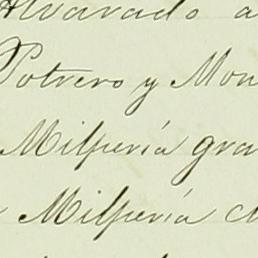 Alvarado a
Potrero y Mon
Milpería gra
Milpería c